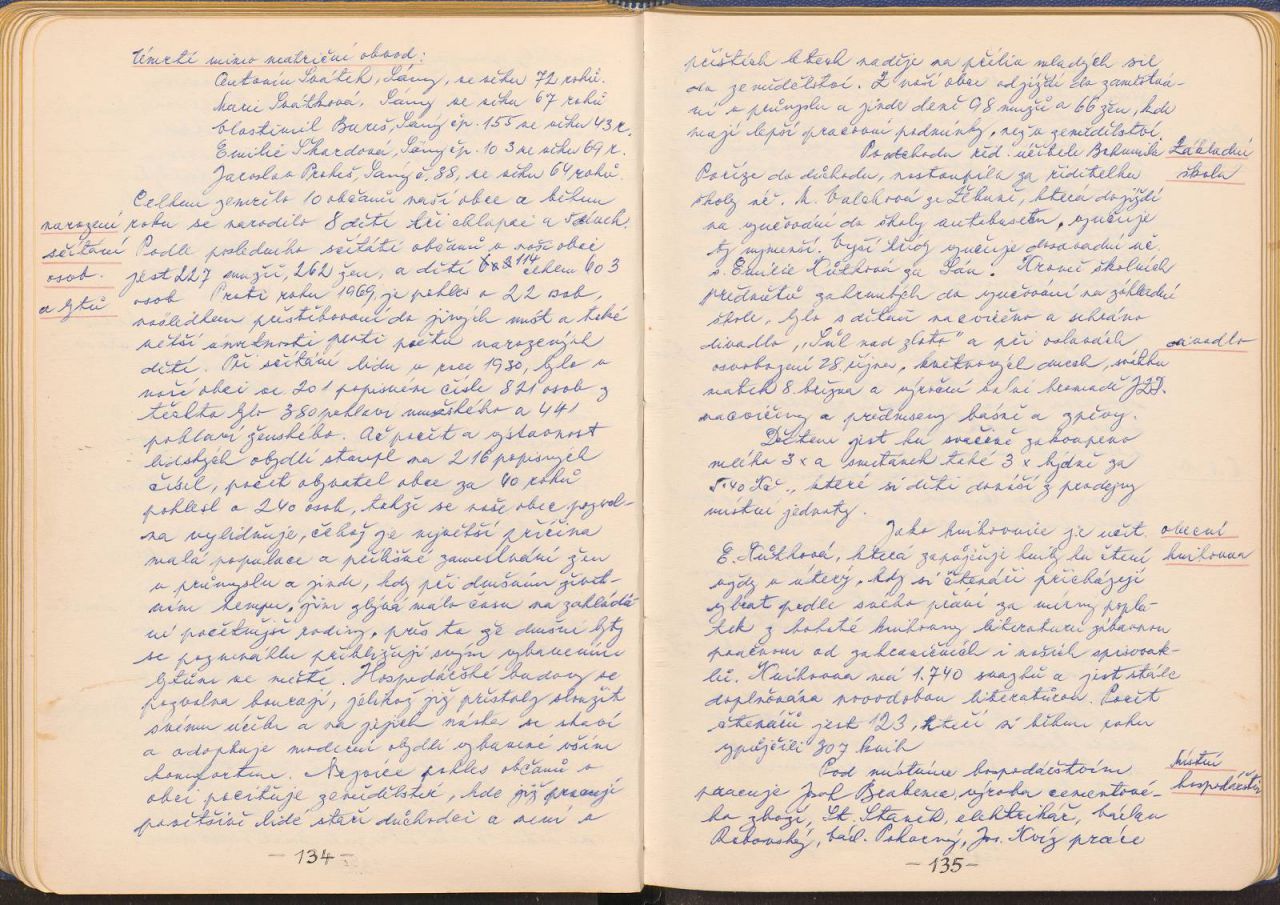 Úmrtí mimo matriční obvod:
Antonín Svátek, Sány, ve věku 72 roků.
Marie Svátková, Sány ve věku 67 roků
Vlastimil Bureš, Sány čp. 155 ve věku 43 r.
Emilie Škardová, Sány čp. 103 ve věku 69 r.
Jaroslav Prokeš, Sány č. 38, ve věku 64 roků.
Celkem zemřelo 10 občanů naší obce a během
narození roku se narodilo 8 dětí tři chlapci a 5 děvčat.
sčítání Podle posledního sčítání občanů v naší obci
osob. jest 227 mužů, 262 žen, a dětí 114 celkem 603
a bytů osob Proti roku 1969, je pokles o 22 osob,
následkem přestěhování do jiných míst a také
větší úmrtnosti proti počtu narozených
dětí. Při sčítání lidu v roce 1930, bylo v
naší obci ve 201 popisném čísle 821 osob z
těchto bylo 380 pohlaví mužského a 441
pohlaví ženského. Ač počet a výstavnost
lidských obydlí stoupl na 216 popisných
čísel, počet obyvatel obce za 40 roků
poklesl o 240 osob, takže se naše obec pozvol-
na vylidňuje, čehož je největší příčina
malá populace a přílišné zaměstnání žen
v průmyslu a jinde, kdy při dnešním život-
ním tempu, jim zbývá málo času na zakládá-
ní početnější rodiny, přes to že dnešní byty
se poznenáhlu přibližují svým vybavením
bytům ve městě. Hospodářské budovy se
pozvolna bourají, jelikož již přestaly sloužit
svému účelu a na jejich místa se staví
a adoptuje moderní obydlí vybavené vším
komfortem. Nejvíce pokles občanů v
obci pociťuje zemědělství, kde již pracují
povětšině lidé staří důchodci a není v
- 134 -
příštích letech naděje na příliv mladých sil
do zemědělství. Z naší obce odjíždí do zaměstná-
ní v průmyslu a jinde deně 98 mužů a 66 žen, kde
mají lepší pracovní podmínky, než v zemědělství.
Po odchodu říd. učitele Bohumila Základní
Poříze do důchodu, nastoupila za ředitelku škola
školy uč. M. Valchová ze Žehuně, která dojíždí
na vyučování do školy autobusem, vyučuje
ty nejmenší. Vyšší třídy vyučuje dosavadní uč.
s. Emilie Kůtková ze Sán. Kromě školních
předmětů zahrnutých do vyučování na základní
škole, bylo s dětmi nacvičeno a sehráno
divadlo, "Sůl nad zlato" a při oslavách divadlo
osvobození 28 října, květnových dnech, svátku
matek 8. března a výroční valné hromadě JZD.
nacvičeny a předneseny básně a zpěvy.
Dětem jest ku svačině zakoupeno
mléko 3 x a smetánek také 3 x týdně za
5.40 Kčs., které si děti donáší z prodejny
místní jednoty.
Jako knihovnice je učit. obecní
E. Kůtková, která zapůjčuje knihy ku čtení knihovna
vždy v úterý, kdy si čtenáři přicházejí
vybrat podle svého přání za mírný popla-
tek z bohaté knihovny literaturu zábavnou
poučnou od zahraničních i našich spisova-
lů. Knihovna má 1.740 svazků a jest stále
doplňována novodobou literaturou. Počet
čtenářů jest 123, kteří si během roku
vypůjčili 307 knih
Pod místním hospodářstvím Místní
pracuje Josef Brabenec, výroba cementové- hospodářství
ho zboží, St. Staněk, elektrikář, Václav
Rokovský, Václ. Pokorný, Jos. Kvíz práce
- 135 -